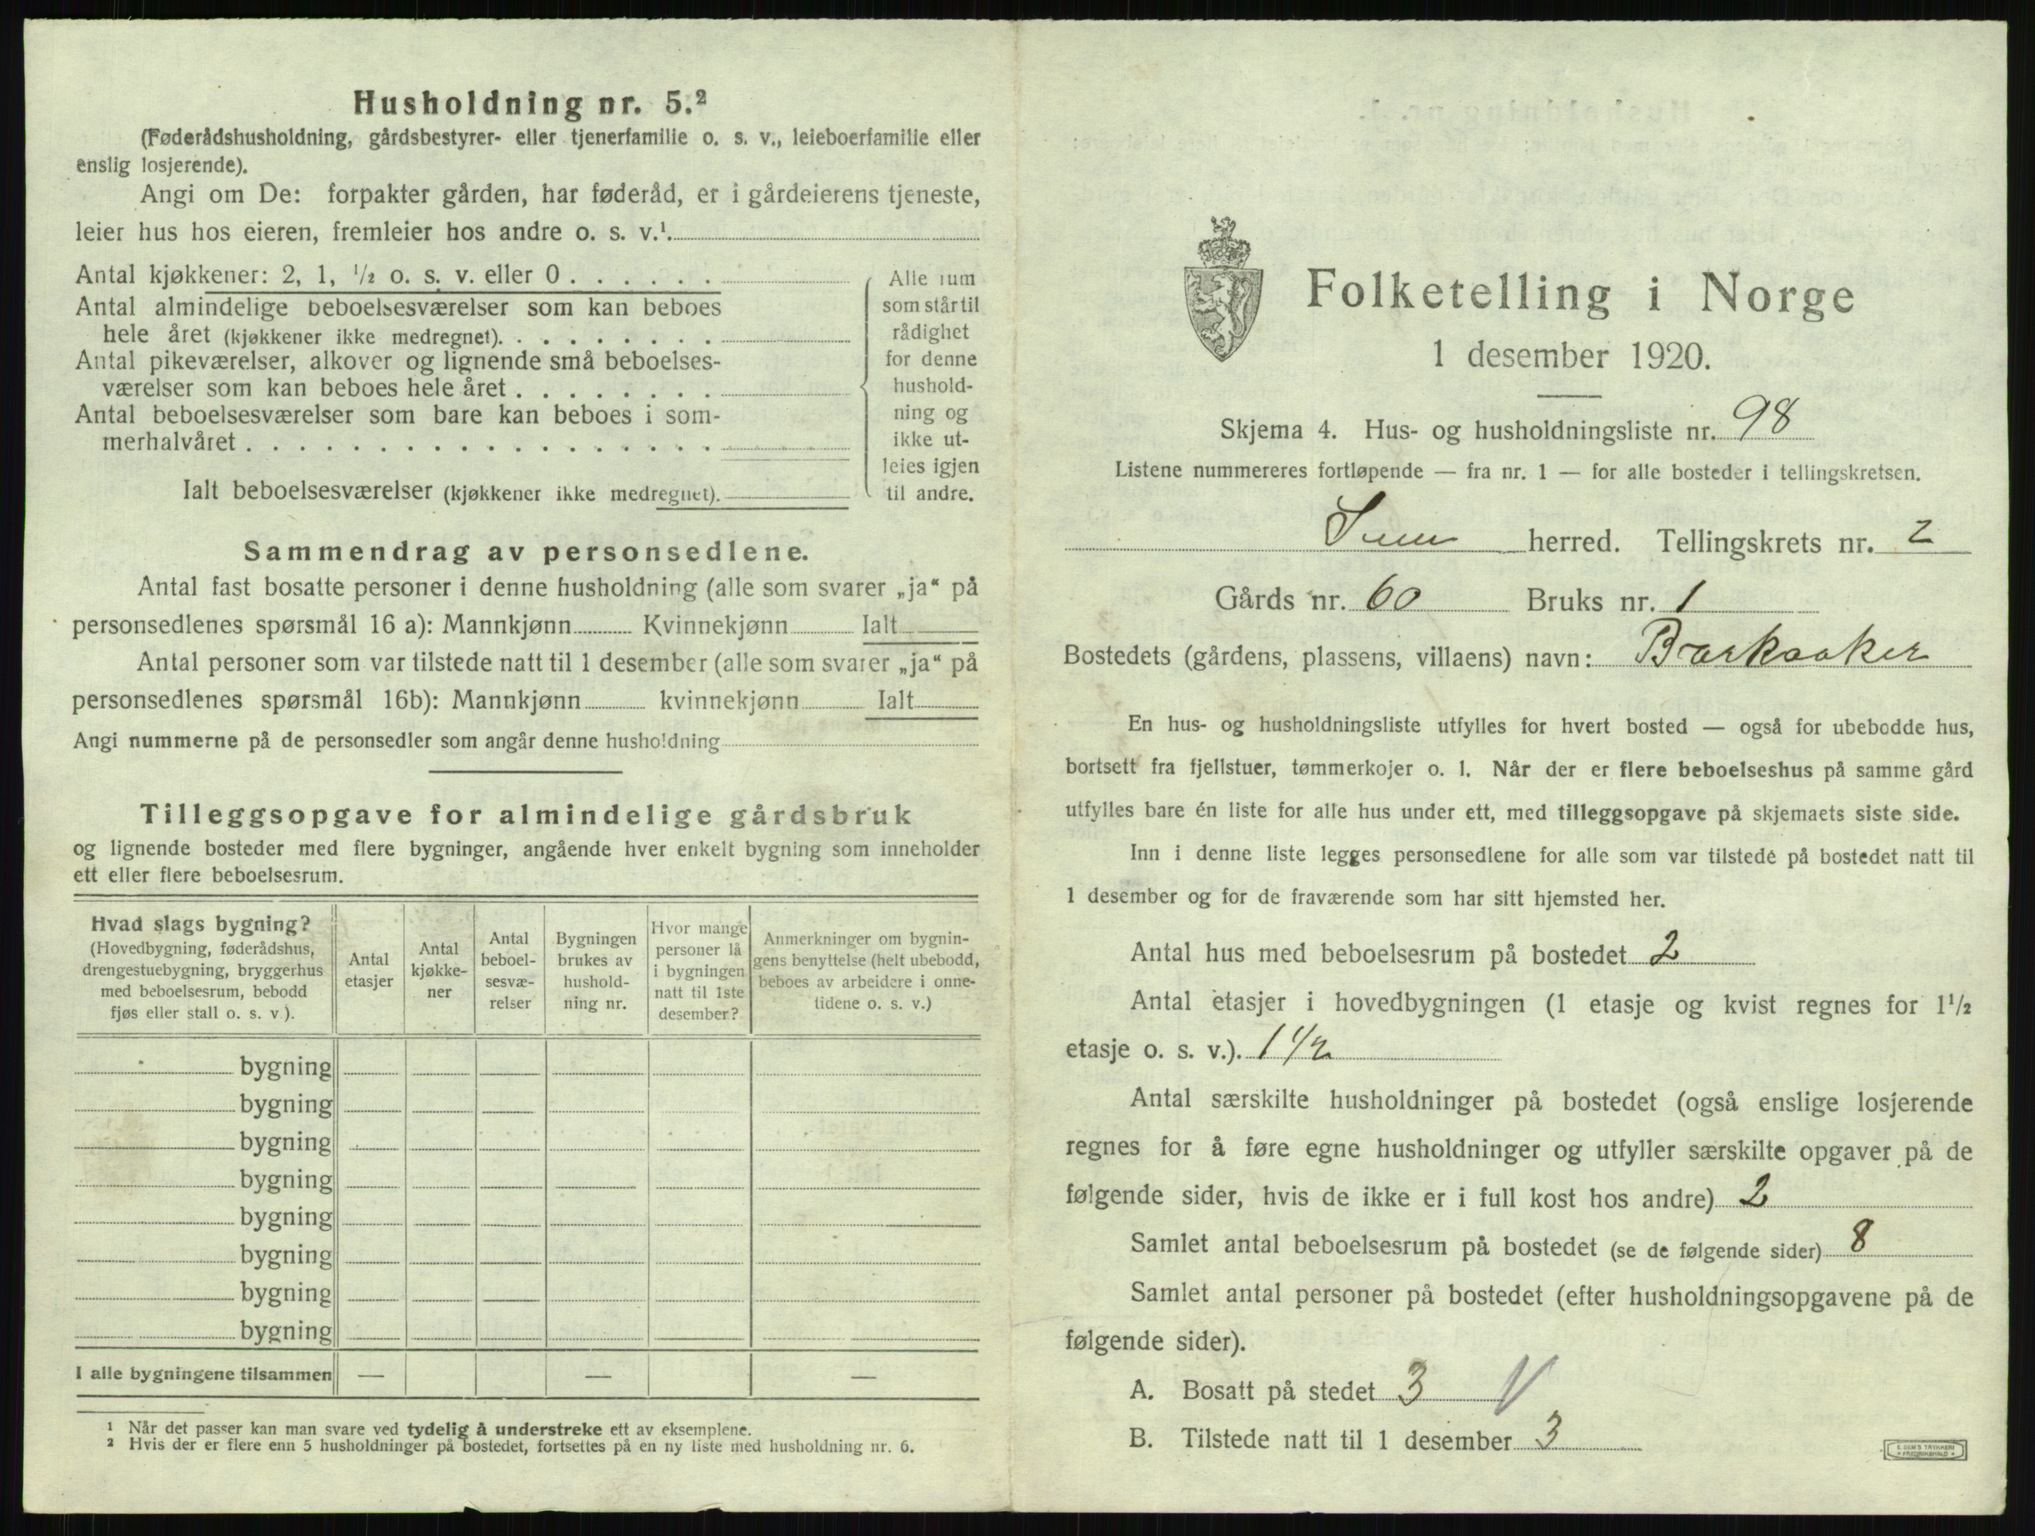 Husholdning nr. 5.²
(Føderådshusholdning, gårdsbestyrer- eller tjenerfamilie o. s. v., leieboerfamilie eller
enslig losjerende).
Angi om De: forpakter gården, har føderåd, er i gårdeierens tjeneste,
leier hus hos eieren, fremleier hos andre o. s. v.¹.
Antal kjøkkener: 2, 1, ½ o. s. v. eller 0 . . . . . .
Antal almindelige beboelsesværelser som kan beboes
hele året (kjøkkener ikke medregnet). . . . . . . . .
Antal pikeværelser, alkover og lignende små beboelses-
værelser som kan beboes hele året . . . . . . . .
Antal beboelsesværelser som bare kan beboes i som-
merhalvåret . . . . . . . . . . . . . . . . . .
Ialt beboelsesværelser (kjøkkener ikke medregnet).
Alle rum
som står til
rådighet
for denne
hushold-
ning og
ikke ut-
leies igjen
til andre.
Sammendrag av personsedlene.
Antal fast bosatte personer i denne husholdning (alle som svarer „ja“ på
personsedlenes spørsmål 16 a): Mannkjønn Kvinnekjønn Ialt
Antal personer som var tilstede natt til 1 desember (alle som svarer „ja“ på
personsedlenes spørsmål 16b): Mannkjønn kvinnekjønn Ialt
Angi nummerne på de personsedler som angår denne husholdning
Tilleggsopgave for almindelige gårdsbruk
og lignende bosteder med flere bygninger, angående hver enkelt bygning som inneholder
ett eller flere beboelsesrum.
Hvad slags bygning?
(Hovedbygning, føderådshus,
drengestuebygning, bryggerhus
med beboelsesrum, bebodd
fjøs eller stall o. s. v.).
Antal
etasjer
Antal
kjøkke-
ner
Antal
beboel-
sesvæ-
relser
Bygningen
brukes av
hushold-
ning nr.
Hvor mange
personer lå
i bygningen
natt til 1ste
desember?
Anmerkninger om bygnin-
gens benyttelse (helt ubebodd,
beboes av arbeidere i onne-
tidene o. s. v.)
bygning
bygning
bygning
bygning
bygning
bygning
bygning
bygning
I alle bygningene tilsammen — — —
¹ Når det passer kan man svare ved tydelig å understreke ett av eksemplene.
² Hvis der er flere enn 5 husholdninger på bostedet, fortsettes på en ny liste med husholdning nr. 6.
Folketelling i Norge
1 desember 1920.
Skjema 4. Hus- og husholdningsliste nr. 98
Listene nummereres fortløpende — fra nr. 1 — for alle bosteder i tellingskretsen.
Sem herred. Tellingskrets nr. 2
Gårds nr. 60 Bruks nr. 1
Bostedets (gårdens, plassens, villaens) navn: Barkaaker
En hus- og husholdningsliste utfylles for hvert bosted — også for ubebodde hus,
bortsett fra fjellstuer, tømmerkojer o. l. Når der er flere beboelseshus på samme gård
utfylles bare én liste for alle hus under ett, med tilleggsopgave på skjemaets siste side.
Inn i denne liste legges personsedlene for alle som var tilstede på bostedet natt til
1 desember og for de fraværende som har sitt hjemsted her.
Antal hus med beboelsesrum på bostedet 2
Antal etasjer i hovedbygningen (1 etasje og kvist regnes for 1½
etasje o. s. v.). 1 1/2
Antal særskilte husholdninger på bostedet (også enslige losjerende
regnes for å føre egne husholdninger og utfyller særskilte opgaver på de
følgende sider, hvis de ikke er i full kost hos andre) 2
Samlet antal beboelsesrum på bostedet (se de følgende sider) 8
Samlet antal personer på bostedet (efter husholdningsopgavene på de
følgende sider).
A. Bosatt på stedet 3
B. Tilstede natt til 1 desember 3
E. SEM'S TRYKKERI
FREDRIKSHALD